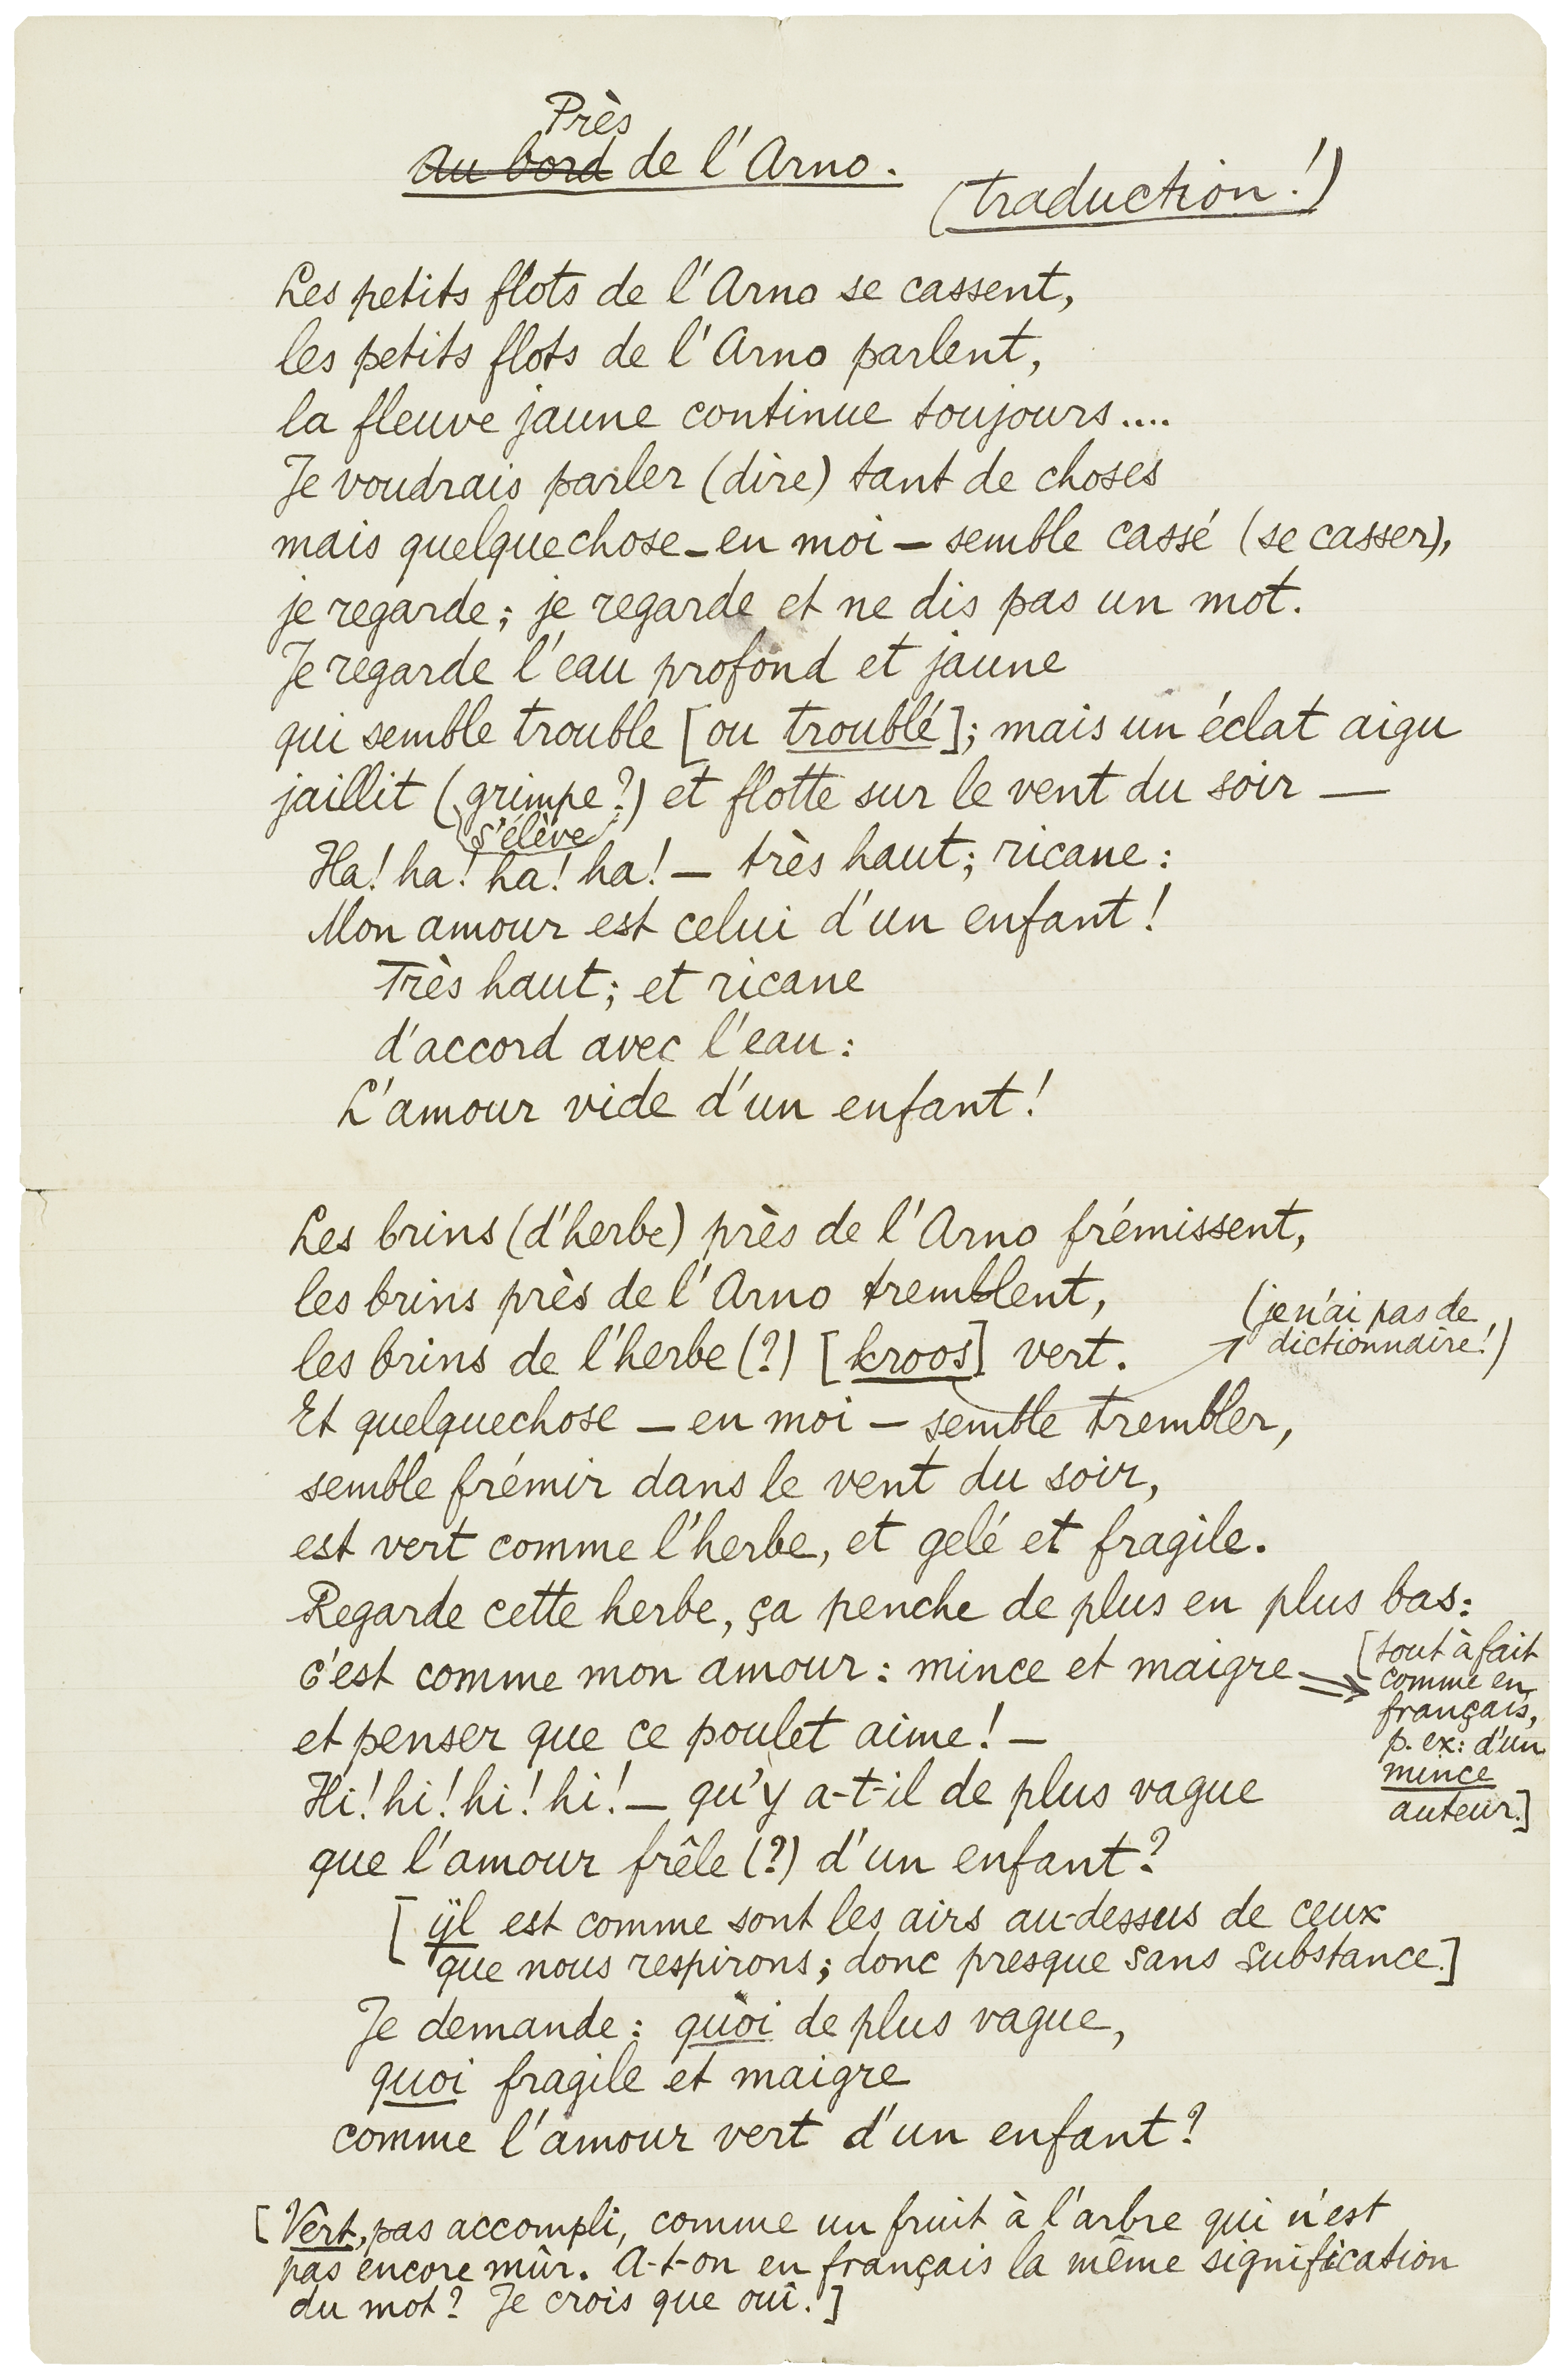 Près
Au bord de l'Arno.
(traduction!)
Les petits flots de l'Arno se cassent,
les petits flots de l'Arno parlent,
la fleuve jaune continue toujours....
Je voudrais parler (dire) tant de choses
mais quelquechose – en moi – semble cassé (se casser),
je regarde; je regarde et ne dis pas un mot.
Je regarde l'eau profond et jaune
qui semble trouble [ou troublé]; mais un éclat aigu
jaillit (grimpe?) et flotte sur le vent du soir —
s'élève
Ha! ha! ha! ha! — très haut; ricane:
Mon amour est celui d'un enfant!
Très haut; et ricane
d'accord avec l'eau:
L'amour vide d'un enfant!
Les brins (d'herbe) près de l'Arno frémissent,
les brins près de l'Arno tremblent,
(je n'ai pas de
dictionnaire!)
les brins de l'herbe (?) [kroos] vert.
Et quelquechose — en moi — semble trembler,
semble frémir dans le vent du soir,
est vert comme l'herbe, et gelé et fragile.
Regarde cette herbe, ça penche de plus en plus bas:
c'est comme mon amour: mince et maigre
[tout à fait
comme en
français,
p. ex: d'un
mince
auteur.]
et penser que ce poulet aime! —
Hi! hi! hi! hi! — qu'y a-t-il de plus vague
que l'amour frêle (?) d'un enfant?
[ijl est comme sont les airs au-dessus de ceux
que nous respirons; donc presque sans substance.]
Je demande: quoi de plus vague,
quoi fragile et maigre
comme l'amour vert d'un enfant?
[Vert, pas accompli, comme un fruit à l'arbre qui n'est
pas encore mûr. A-t-on en français la même signification
du mot? Je crois que oui.]